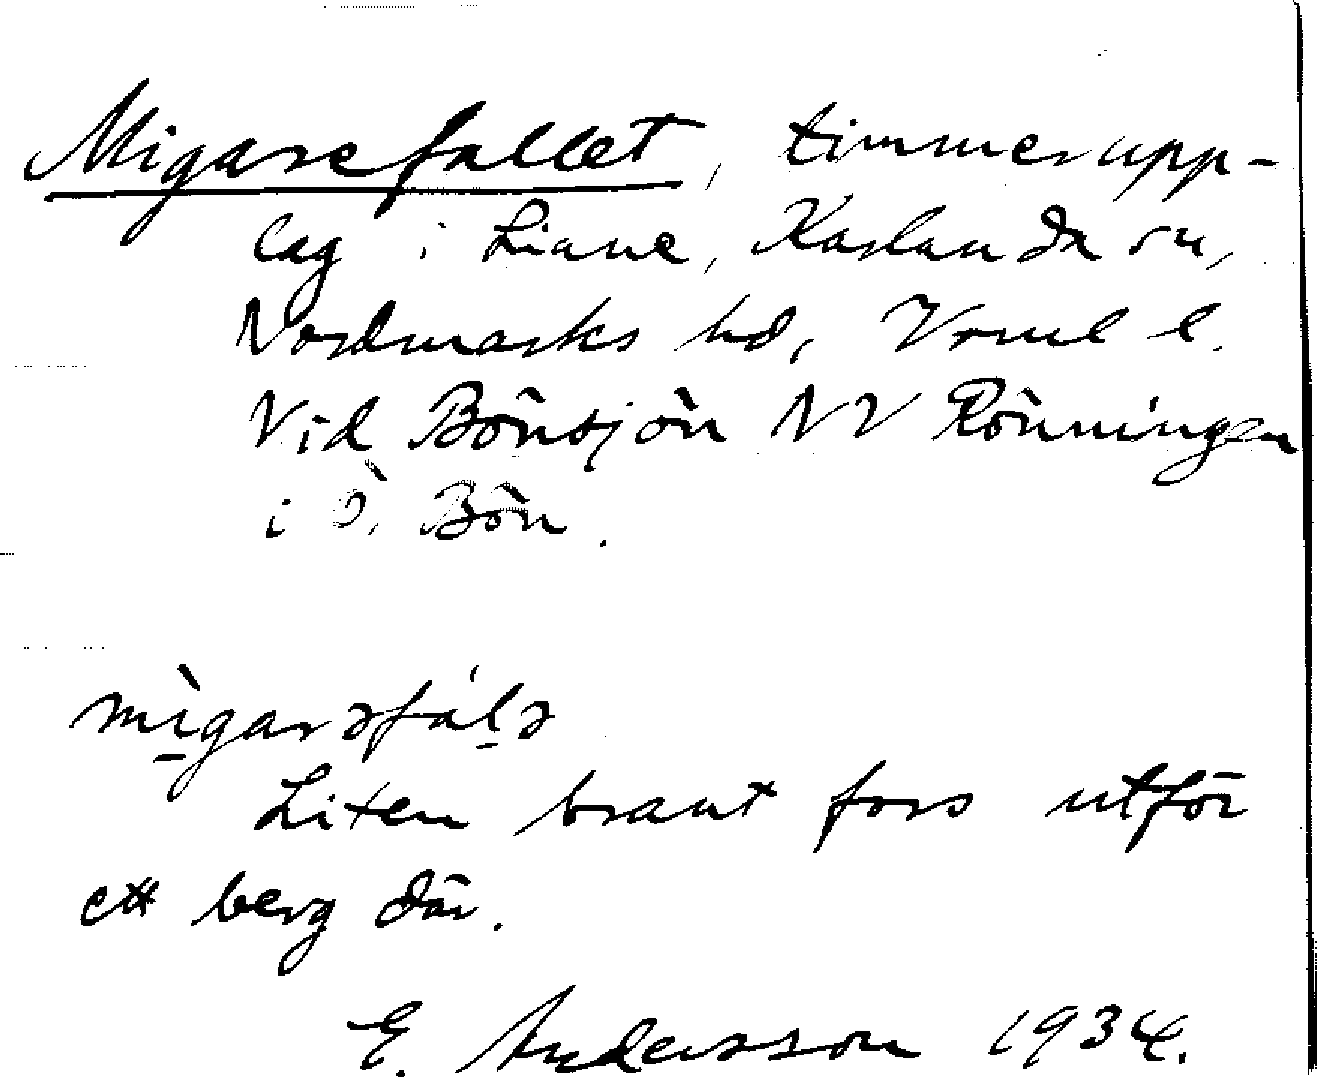 Migarefallet, timmerupp-
lag i Liane, Karlanda sn,
Nordmarks hd, Vrml l.
Vid Bönsjön NV Rönningen
i Ö. Bön.
mìgarəfálə
Liten brant fors utför
ett berg där.
E. Andersson 1934.